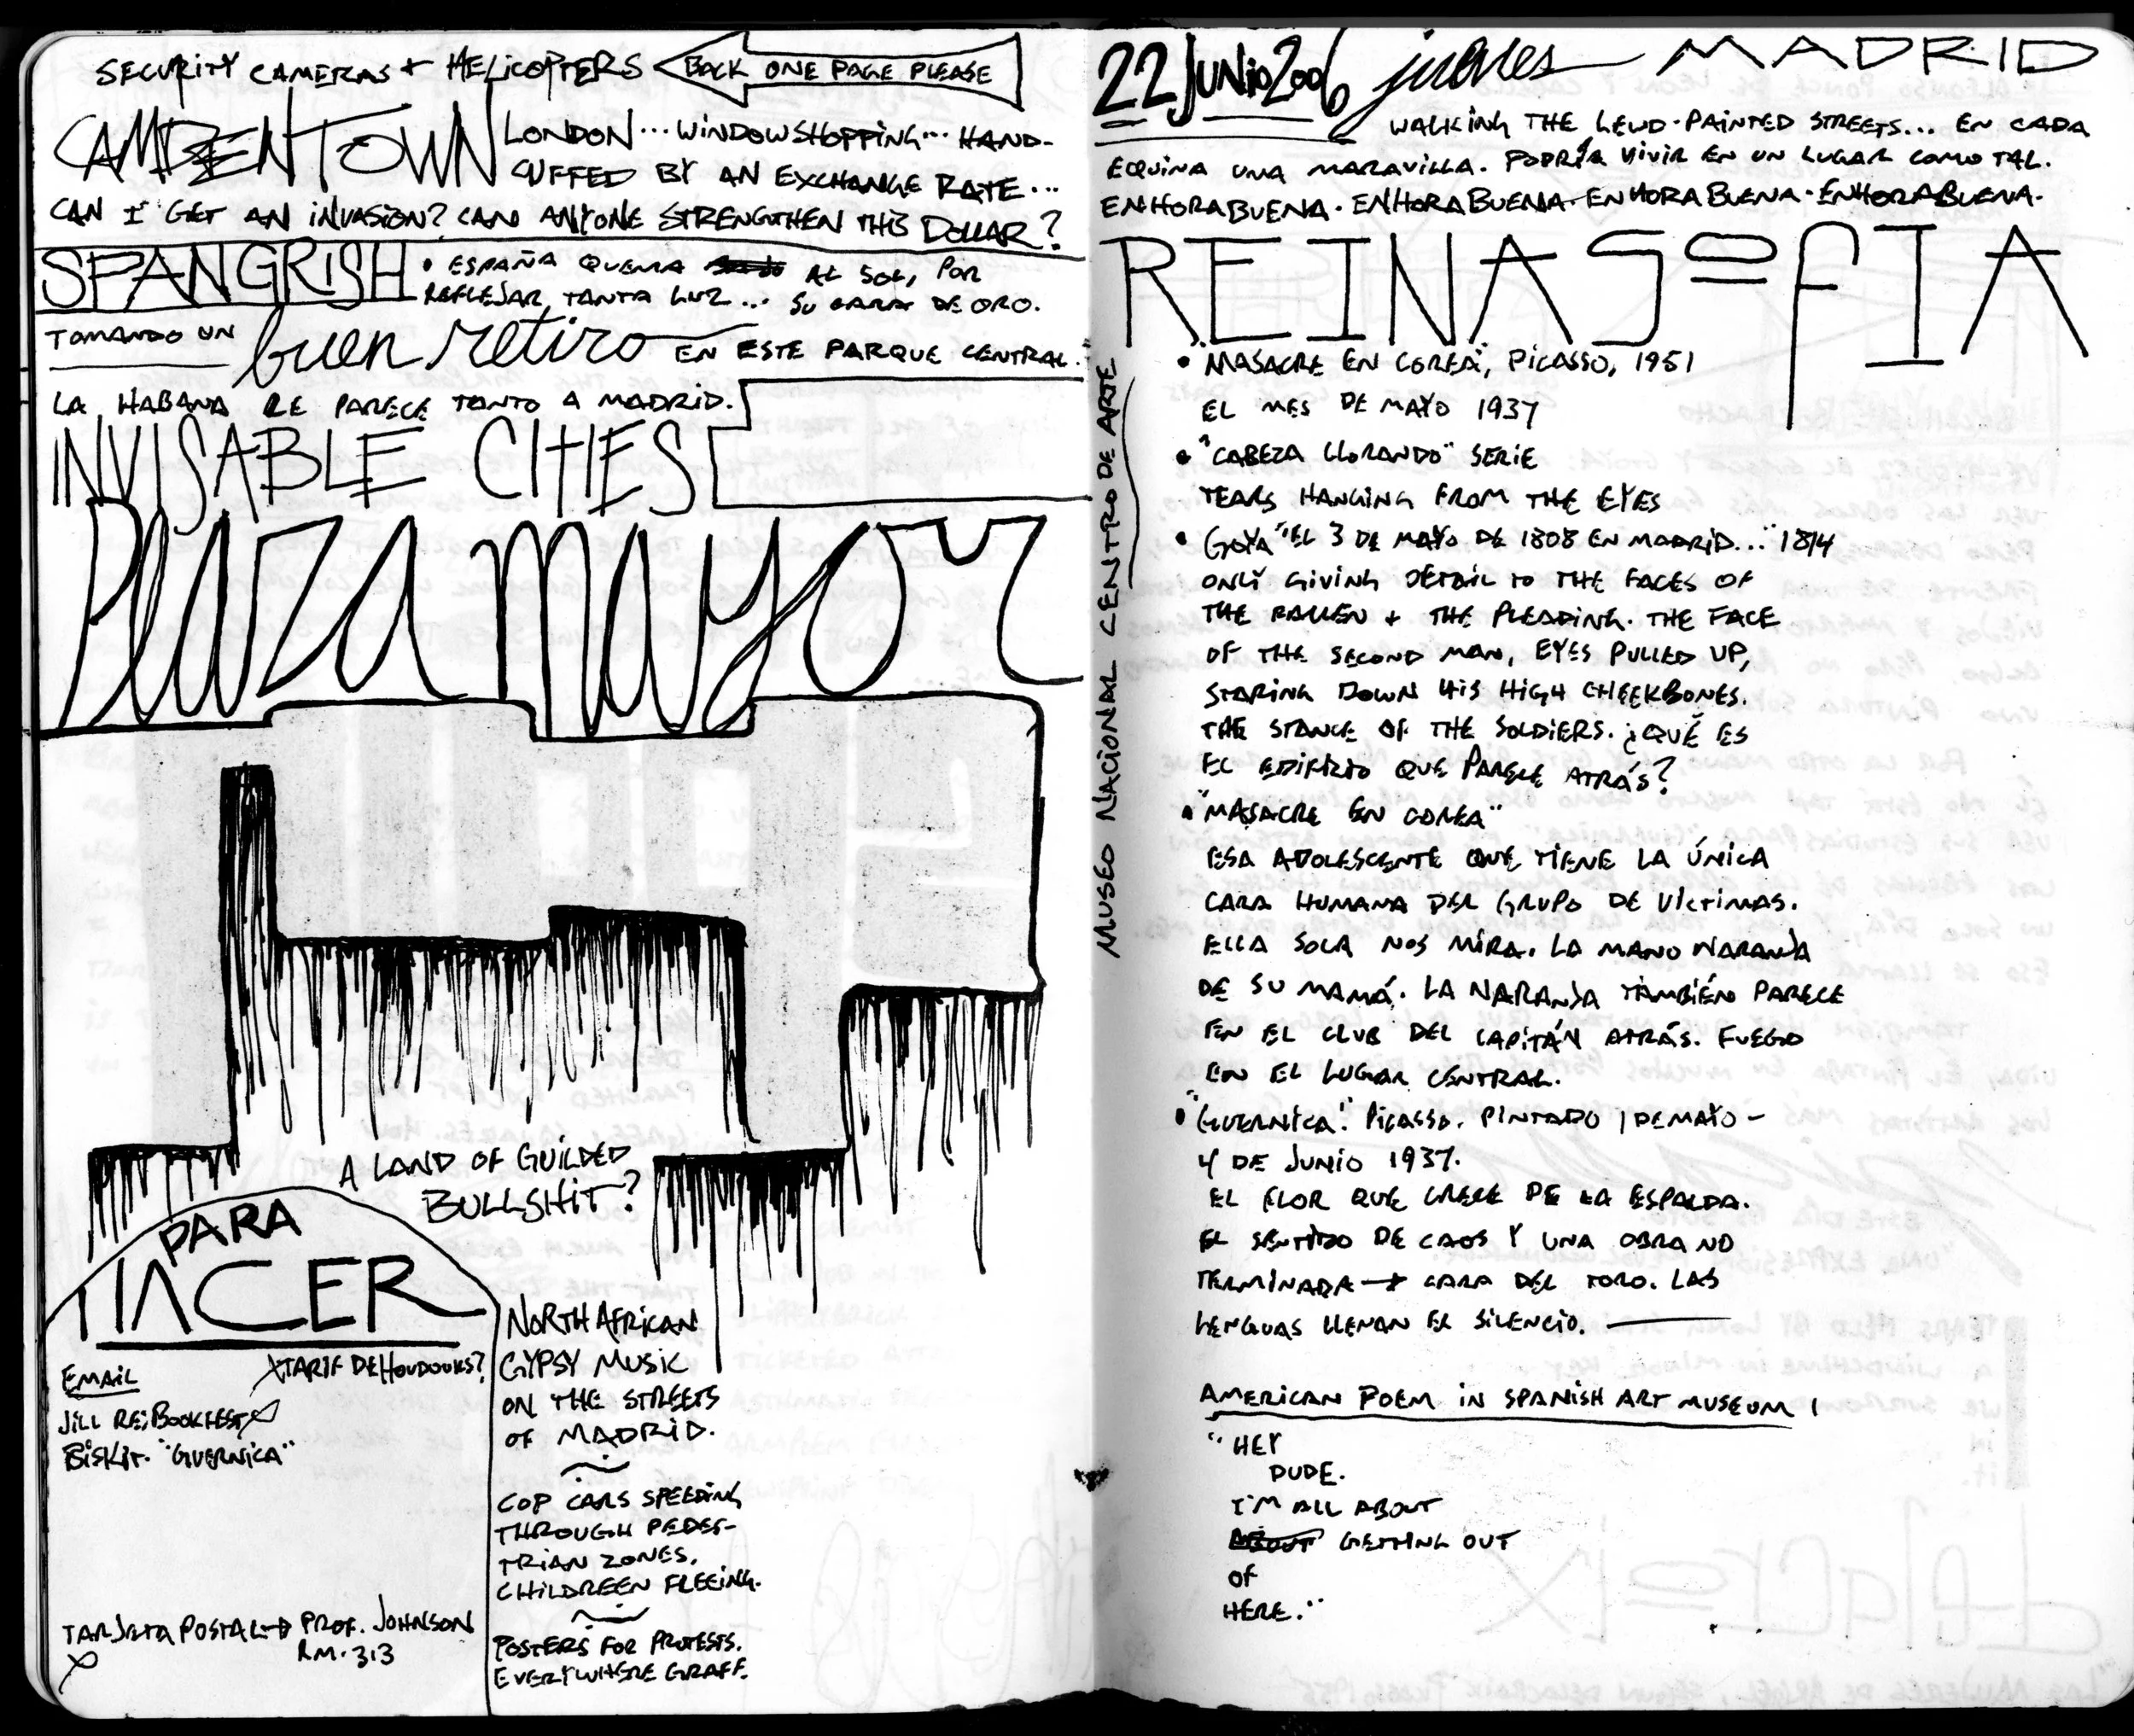 SECURITY CAMERAS + HELICOPTERS
BACK ONE PAGE PLEASE
CAMDEN TOWN
LONDON... WINDOWSHOPPING... HAND-
CUFFED BY AN EXCHANGE RATE...
CAN I GET AN INVASION? CAN ANYONE STRENGTHEN THIS DOLLAR?
SPANGRISH
• ESPAÑA QUEMA AL SOL, POR
REFLEJAR TANTA LUZ... SU CARA DE ORO.
TOMANDO UN buen retiro EN ESTE PARQUE CENTRAL.
LA HABANA SE PARECE TANTO A MADRID.
INVISABLE CITIES
Plaza mayor
A LAND OF GUILDED
BULLSHIT?
PARA
HACER
EMAIL
XTARIF DE HOUDOUKS?
JILL RE: BOOKFEST
BISKIT. "GUERNICA"
TARJETA POSTAL → PROF. JOHNSON
RM. 313
NORTH AFRICAN
GYPSY MUSIC
ON THE STREETS
OF MADRID.
COP CARS SPEEDING
THROUGH PEDES-
TRIAN ZONES.
CHILDREEN FLEEING.
POSTERS FOR PROTESTS.
EVERYWHERE GRAFF.
22 JUNIO 2006 jueves — MADRID
WALKING THE LEWD-PAINTED STREETS... EN CADA
EQUINA UNA MARAVILLA. PODRÍA VIVIR EN UN LUGAR COMO TAL.
ENHORABUENA. ENHORABUENA. ENHORABUENA. ENHORABUENA.
REINA SOFIA
MUSEO NACIONAL CENTRO DE ARTE
• "MASACRE EN COREA", PICASSO, 1951
EL MES DE MAYO 1937
• "CABEZA LLORANDO" SERIE
TEARS HANGING FROM THE EYES
• GOYA "EL 3 DE MAYO DE 1808 EN MADRID..." 1814
ONLY GIVING DETAIL TO THE FACES OF
THE FALLEN + THE PLEADING. THE FACE
OF THE SECOND MAN, EYES PULLED UP,
STARING DOWN HIS HIGH CHEEKBONES.
THE STANCE OF THE SOLDIERS. ¿QUÉ ES
EL EDIFIZIO QUE PARECE ATRÁS?
• "MASACRE EN COREA"
ESA ADOLESCENTE QUE TIENE LA ÚNICA
CARA HUMANA DEL GRUPO DE VICTIMAS.
ELLA SOLA NOS MIRA. LA MANO NARANJA
DE SU MAMÁ. LA NARANJA TAMBIÉN PARECE
EN EL CLUB DEL CAPITÁN ATRÁS. FUEGO
EN EL LUGAR CENTRAL.
• "GUERNICA". PICASSO. PINTADO 1 DE MAYO –
4 DE JUNIO 1937.
EL FLOR QUE CRECE DE LA ESPALDA.
EL SENTIDO DE CAOS Y UNA OBRA NO
TERMINADA → CARA DEL TORO. LAS
LENGUAS LLENAN EL SILENCIO. —
AMERICAN POEM IN SPANISH ART MUSEUM 1
"HEY
DUDE.
I'M ALL ABOUT
ABOUT GETTING OUT
OF
HERE."